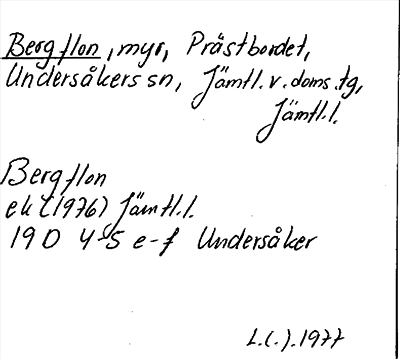 Bergflon, myr, Prästbordet,
Undersåkers sn, Jämtl.v.doms.tg,
Jämtl.l.
Bergflon
ek (1976) Jämtl.l.
19D 4-5 e-f Undersåker
L.(.).1977